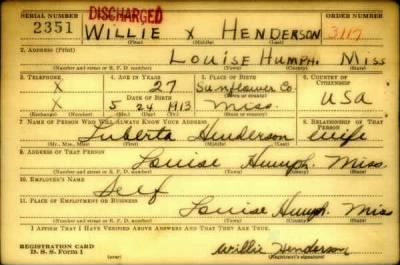 SERIAL NUMBER DISCHARGED ORDER NUMBER
2351 WILLIE X HENDERSON 3117
(First) (Middle) (Last)
2. ADDRESS (Print)
LOUISE HUMPH. MISS
(Number and street or R. F. D. number) (Town) (County) (State)
3. TELEPHONE 4. AGE IN YEARS 5. PLACE OF BIRTH 6. COUNTRY OF CITIZENSHIP
X 27 Sunflower Co. USA
DATE OF BIRTH (Town or county)
X 5 24 1913 Miss.
(Exchange) (Number) (Mo.) (Day) (Yr.) (State or country)
7. NAME OF PERSON WHO WILL ALWAYS KNOW YOUR ADDRESS 8. RELATIONSHIP OF THAT PERSON
Luberta Henderson wife
(First) (Middle) (Last)
9. ADDRESS OF THAT PERSON
Louise Humph. Miss.
(Number and street or R. F. D. number) (Town) (County) (State)
10. EMPLOYER'S NAME
Self
11. PLACE OF EMPLOYMENT OR BUSINESS
Louise Humph. Miss
(Number and street or R. F. D. number) (Town) (County) (State)
I AFFIRM THAT I HAVE VERIFIED ABOVE ANSWERS AND THAT THEY ARE TRUE.
REGISTRATION CARD
D. S. S. Form 1 Willie Henderson
(Registrant's signature)